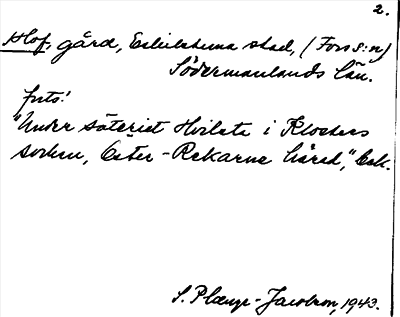 2.
Hof, gård, Eskilstuna stad, (Fors s:n)
Södermanlands län.
"Under säteriet Hvilsta i Klosters
socken, Öster-Rekarne härad,"
S. Plænge-Jacobson, 1943.